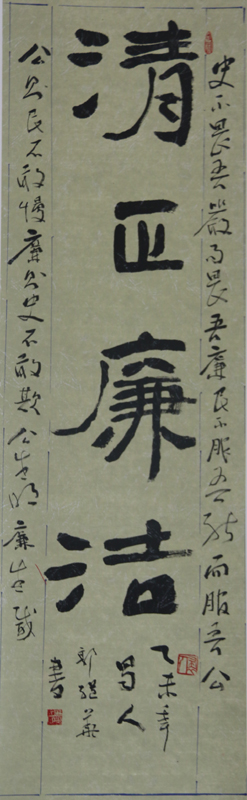 吏不畏吾嚴而畏吾廉民不服吾能而服吾公
清正廉洁
公则民不敢慢廉则吏不敢欺公生明廉生威
乙未年
蜀人
書